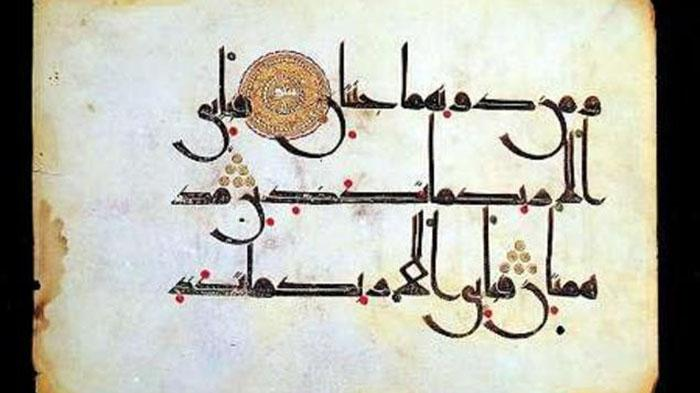 و من دو نهما جنتان فباي
الا ر بكما تكذ بن مد
همتان فباي الا ر بكما تكذ